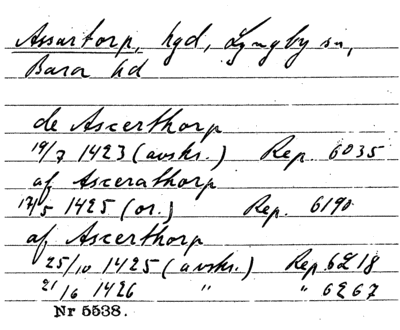 Assartorp, hgd, Lyngby sn,
Bara hd
de Ascerthorp
19/7 1423 (avskr.) Rep. 6035
af Ascerathorp
17/5 1425 (or.) Rep. 6190
af Ascerthorp
25/10 1425 (avskr.) Rep 6218
21/6 1426 " " 6267
Nr 5538.